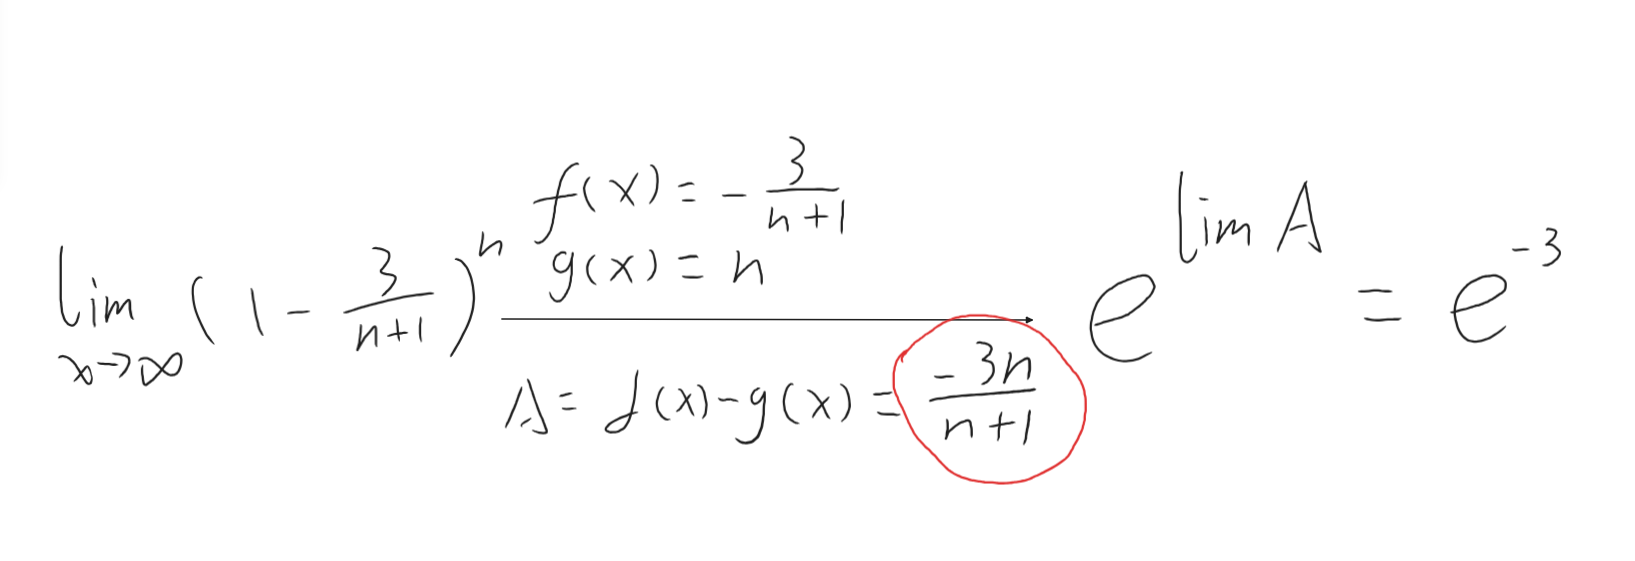 lim x→∞ (1 - 3/(n+1))^n
f(x) = - 3/(n+1)
g(x) = n
A = f(x) - g(x) = -3n/(n+1)
e^(lim A) = e^(-3)